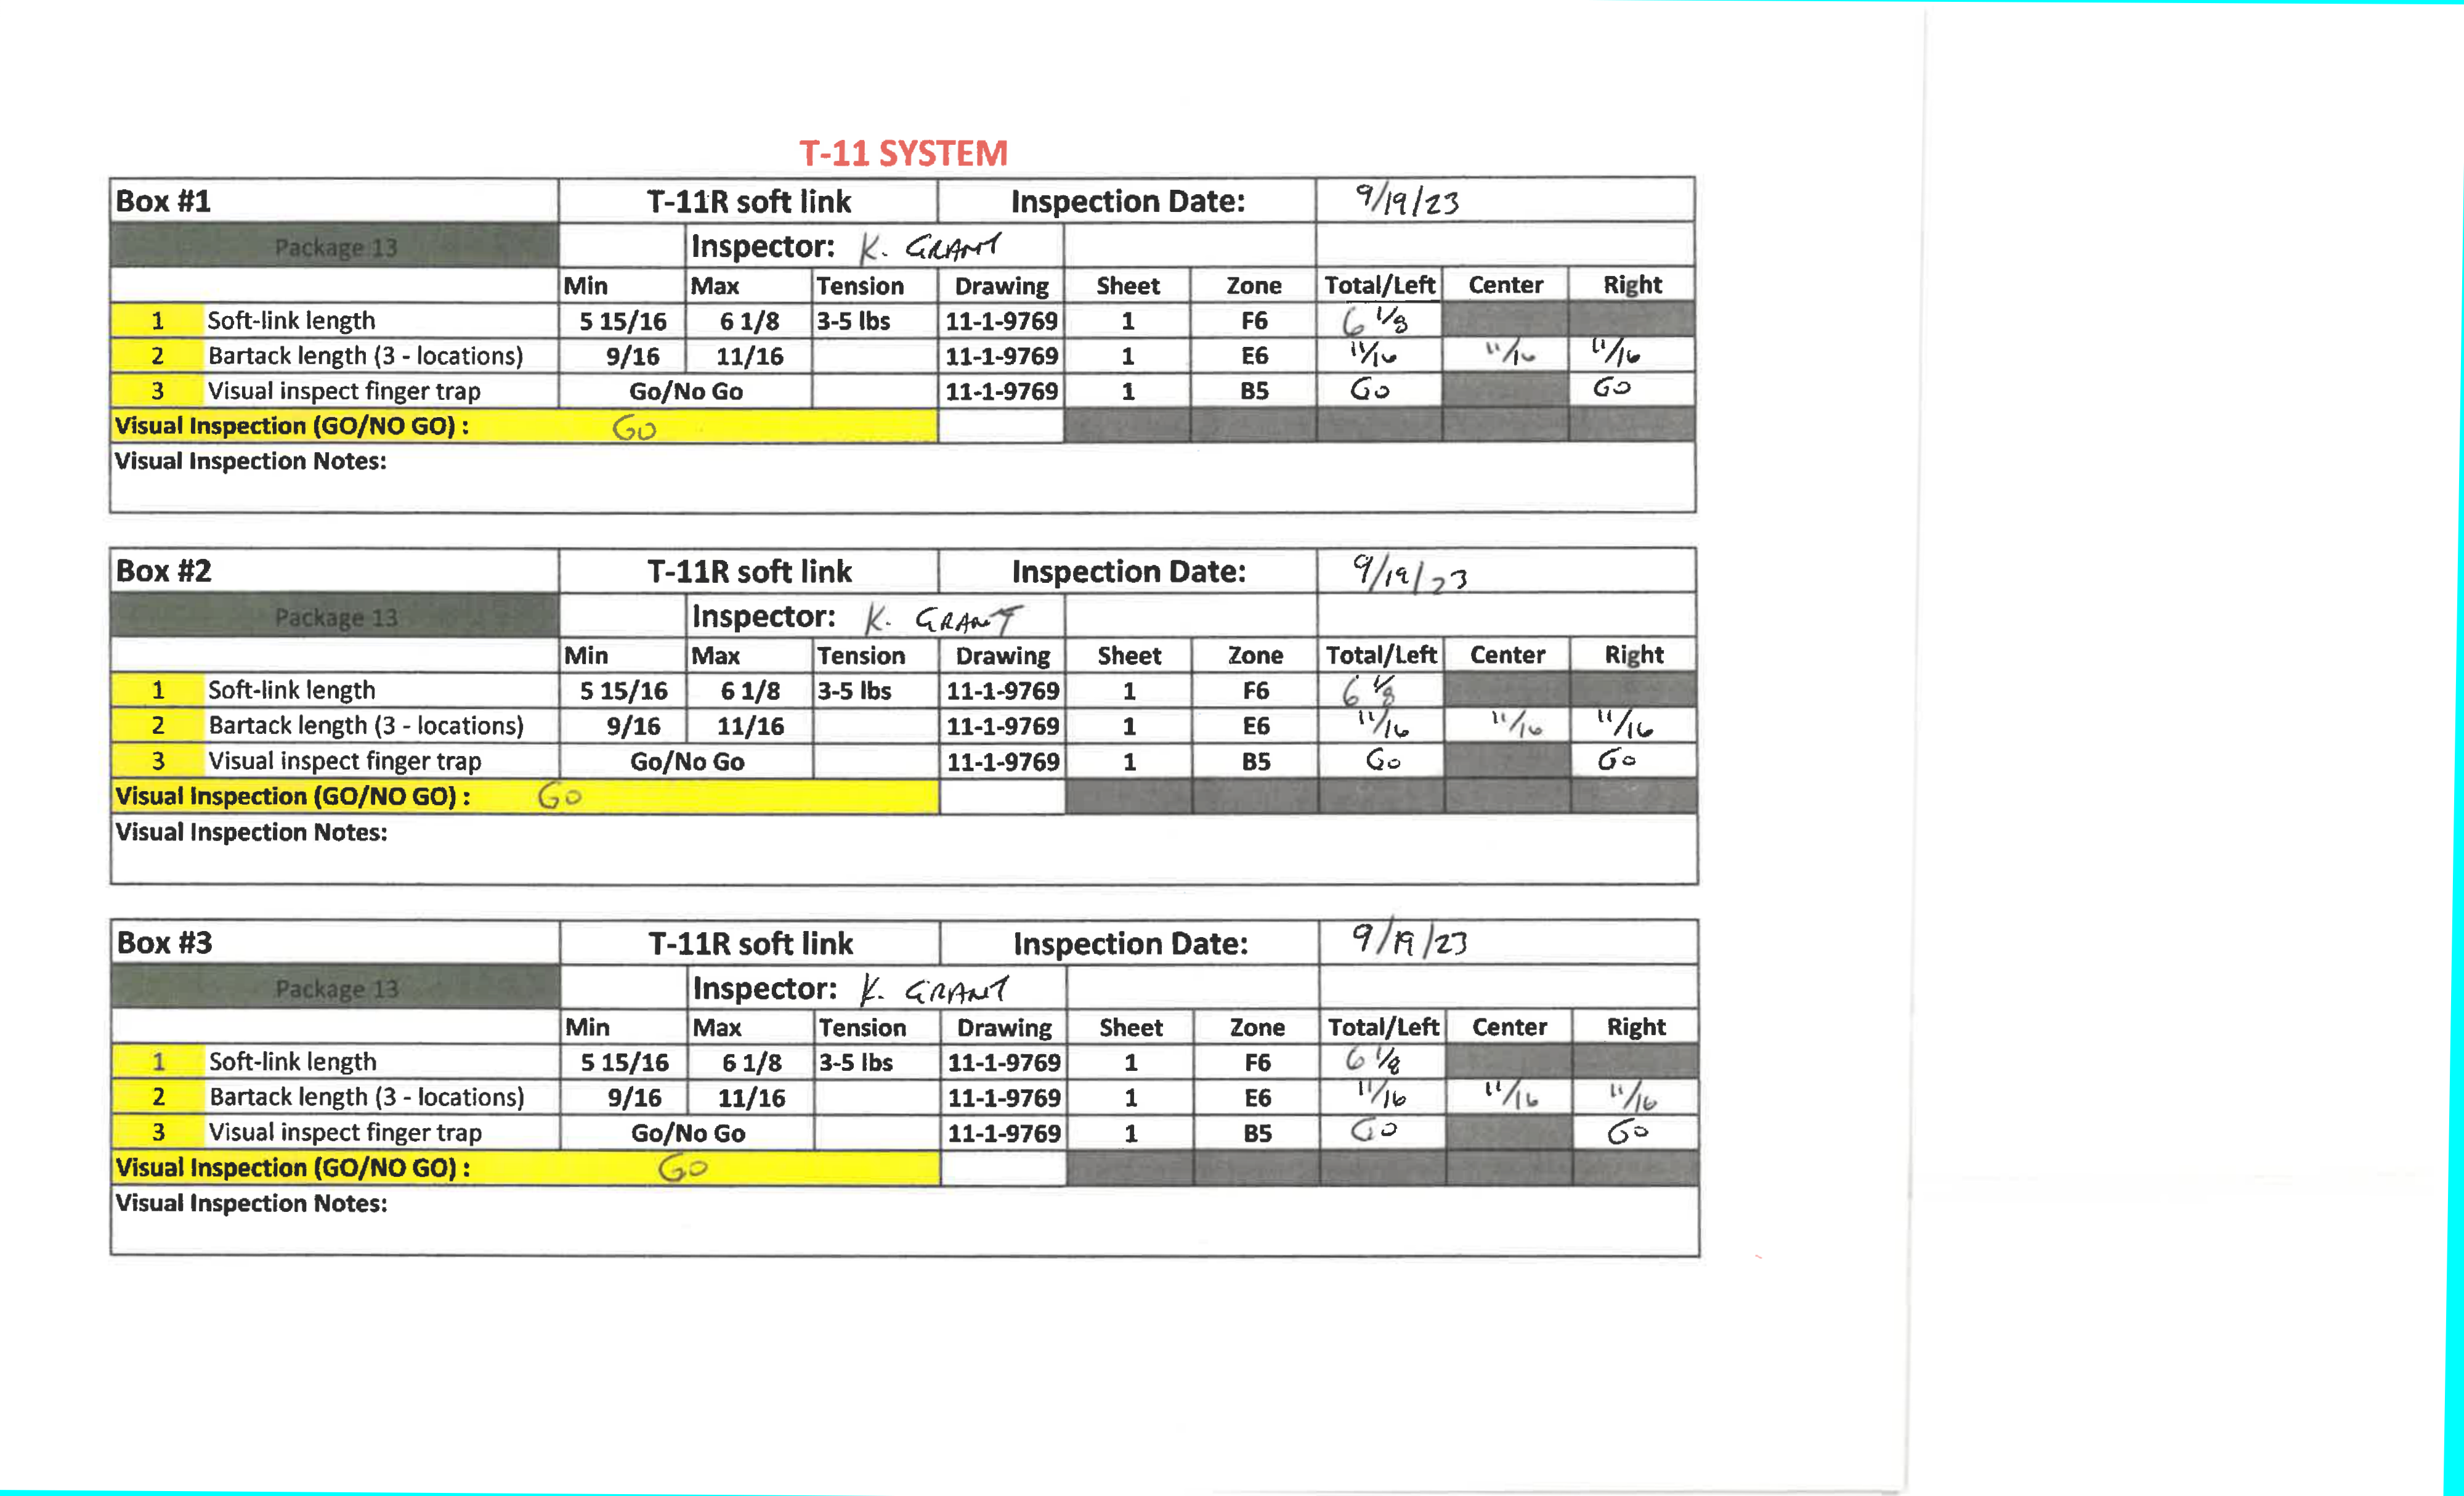 T-11 SYSTEM
Box #1 T-11R soft link Inspection Date: 9/19/23
Package 13 Inspector: K. GRANT
Min Max Tension Drawing Sheet Zone Total/Left Center Right
1 Soft-link length 5 15/16 6 1/8 3-5 lbs 11-1-9769 1 F6 6 1/8
2 Bartack length (3 - locations) 9/16 11/16 11-1-9769 1 E6 11/16 11/16 11/16
3 Visual inspect finger trap Go/No Go 11-1-9769 1 B5 Go Go
Visual Inspection (GO/NO GO) : GO
Visual Inspection Notes:
Box #2 T-11R soft link Inspection Date: 9/19/23
Package 13 Inspector: K. GRANT
Min Max Tension Drawing Sheet Zone Total/Left Center Right
1 Soft-link length 5 15/16 6 1/8 3-5 lbs 11-1-9769 1 F6 6 1/8
2 Bartack length (3 - locations) 9/16 11/16 11-1-9769 1 E6 11/16 11/16 11/16
3 Visual inspect finger trap Go/No Go 11-1-9769 1 B5 Go Go
Visual Inspection (GO/NO GO) : GO
Visual Inspection Notes:
Box #3 T-11R soft link Inspection Date: 9/19/23
Package 13 Inspector: K. GRANT
Min Max Tension Drawing Sheet Zone Total/Left Center Right
1 Soft-link length 5 15/16 6 1/8 3-5 lbs 11-1-9769 1 F6 6 1/8
2 Bartack length (3 - locations) 9/16 11/16 11-1-9769 1 E6 11/16 11/16 11/16
3 Visual inspect finger trap Go/No Go 11-1-9769 1 B5 Go Go
Visual Inspection (GO/NO GO) : GO
Visual Inspection Notes: